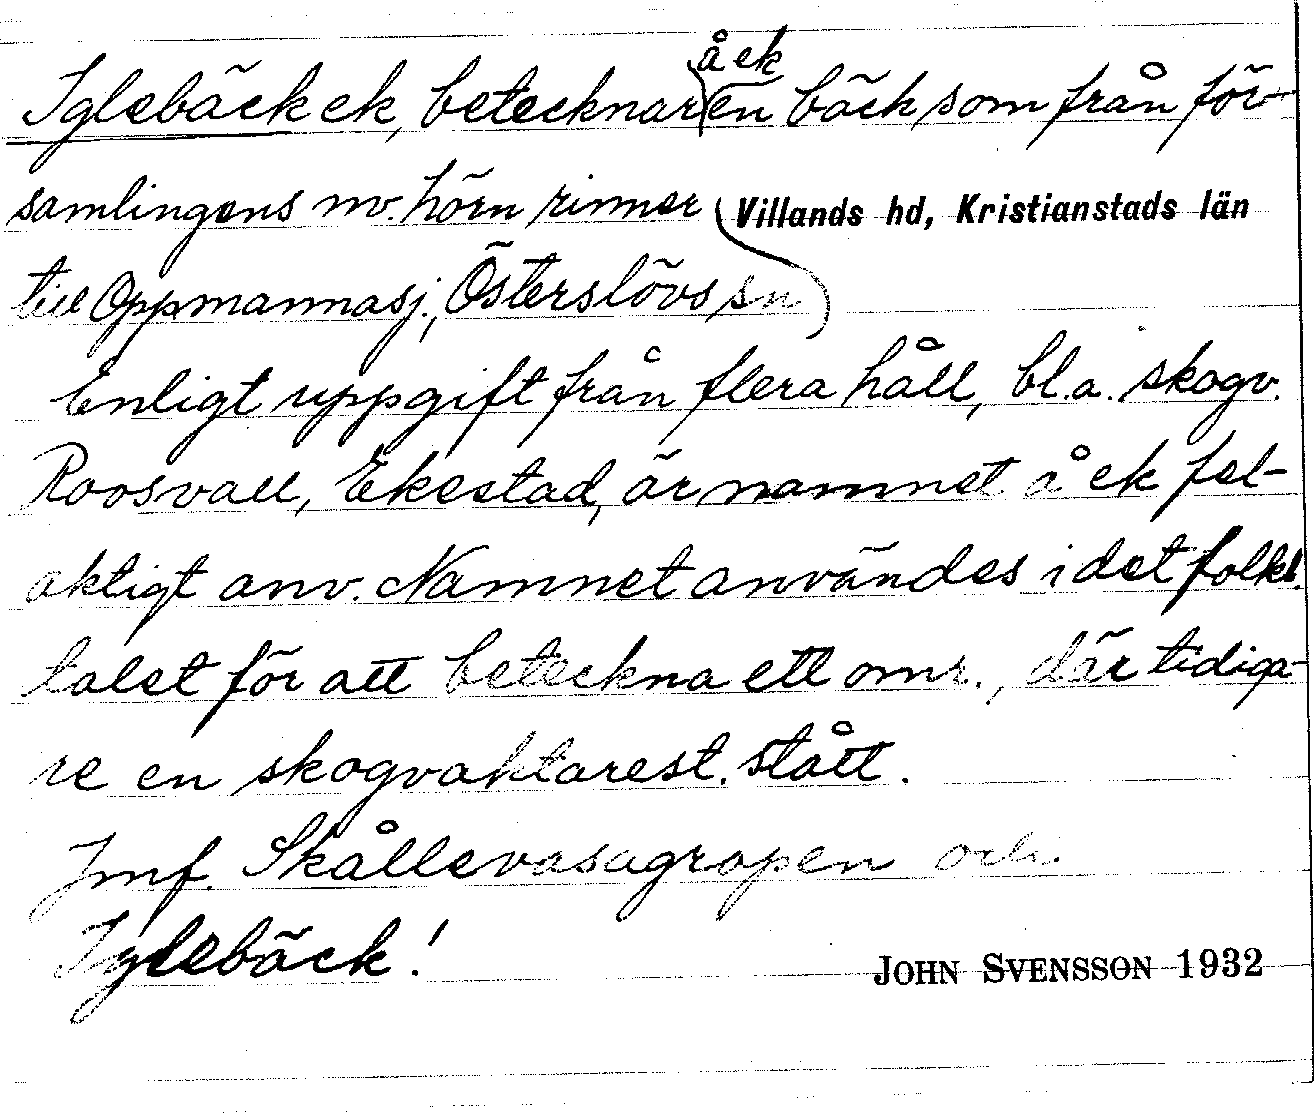 å ek
Iglebäck ek, betecknar en bäck som från för-
samlingens nv. hörn rinner
Villands hd, Kristianstads län
till Oppmannasj., Österslövs sn
Enligt uppgift från flera håll, bl.a. skogv.
Roosvall, Ekestad, är namnet å ek fel-
aktigt anv. Namnet användes i det folkl.
talet för att beteckna ett omr., där tidiga-
re en skogvaktarest. stått.
Jmf. Skållevasagropen och
Iglebäck!
JOHN SVENSSON 1932